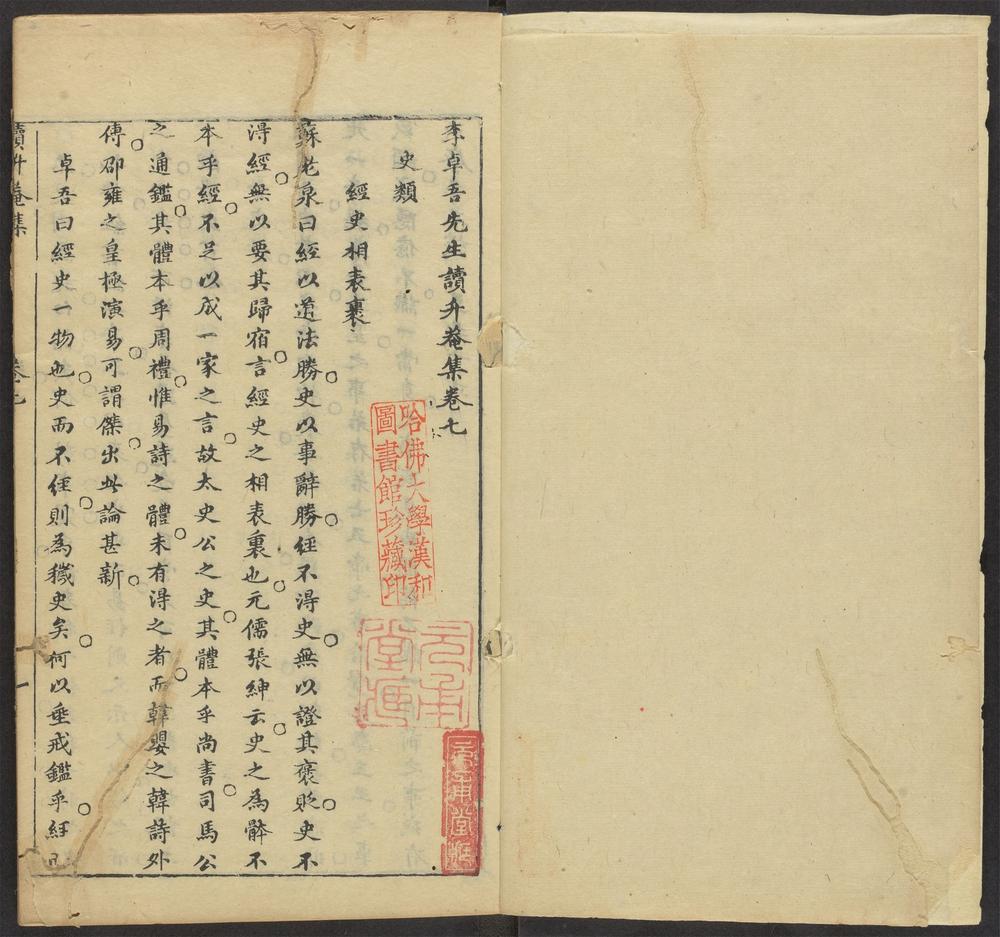 李卓吾先生讀升菴集卷七
史類
經史相表裏
蘇老泉曰經以道法勝史以事辭勝經不得史無以證其褒貶史不
得經無以要其歸宿言經史之相表裏也元儒張紳云史之為骵不
本乎經不足以成一家之言故太史公之史其體本乎尚書司馬公
之通鑑其體本乎周禮惟易詩之體未有得之者而韓嬰之韓詩外
傳邵雍之皇極演易可謂傑出此論甚新
卓吾曰經史一物也史而不經則為穢史矣何以垂戒鑑乎經
讀升菴集
卷七
哈佛大學漢和
圖書館珍藏印